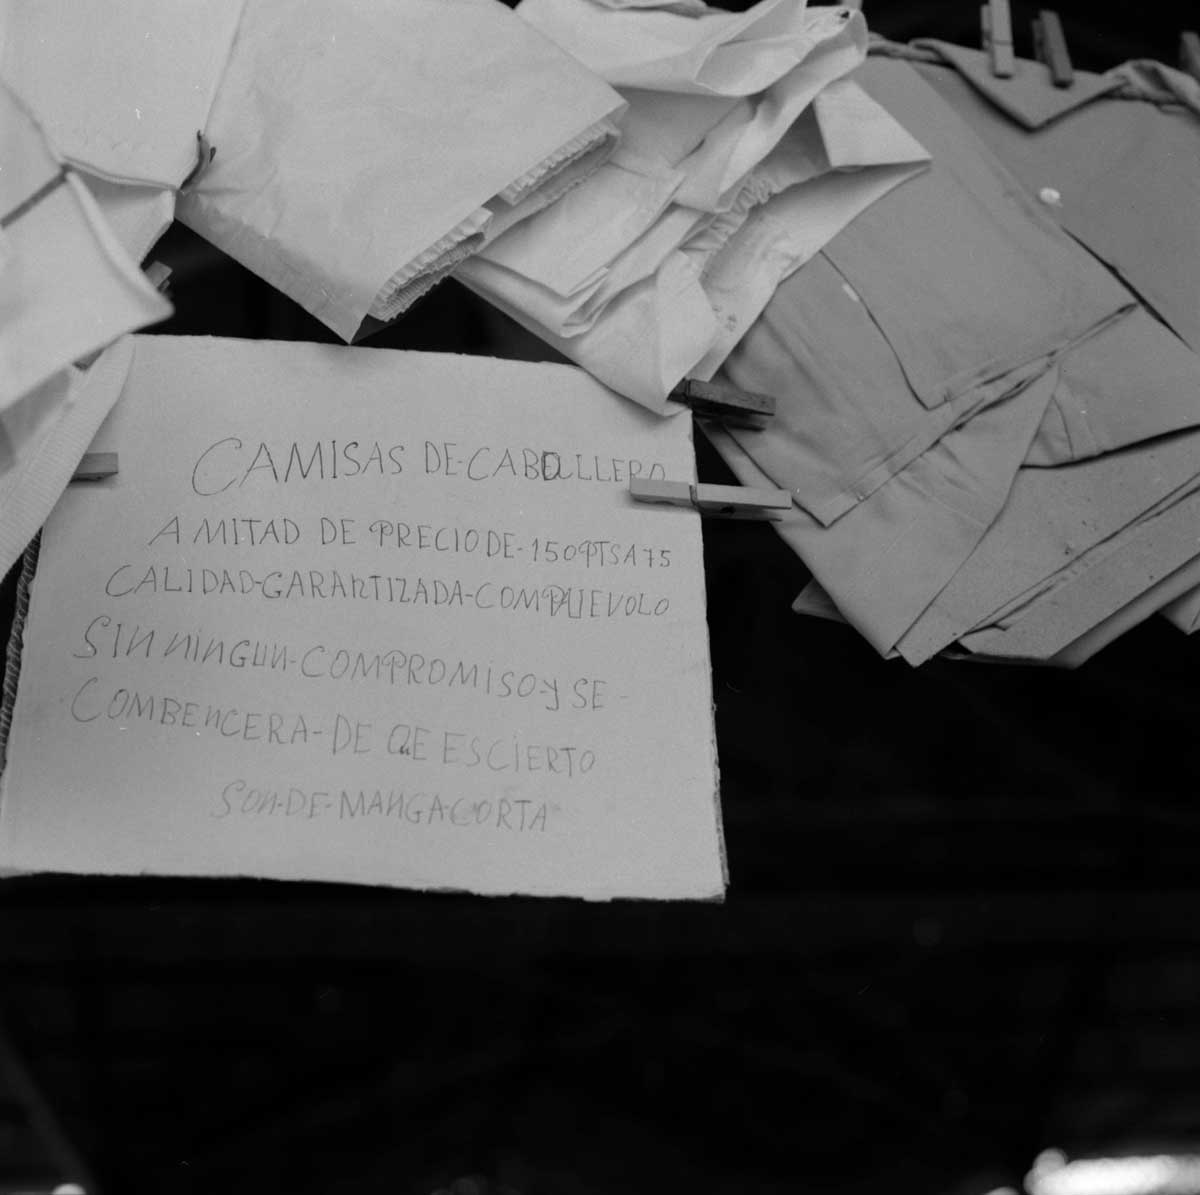 CAMISAS DE-CABALLERO
A MITAD DE PRECIO DE-150 PTS A 75
CALIDAD-GARANTIZADA-COMPRUEVOLO
SIN NINGUN-COMPROMISO-Y SE-
COMBENCERA-DE QUE ES CIERTO
SON-DE-MANGA-CORTA